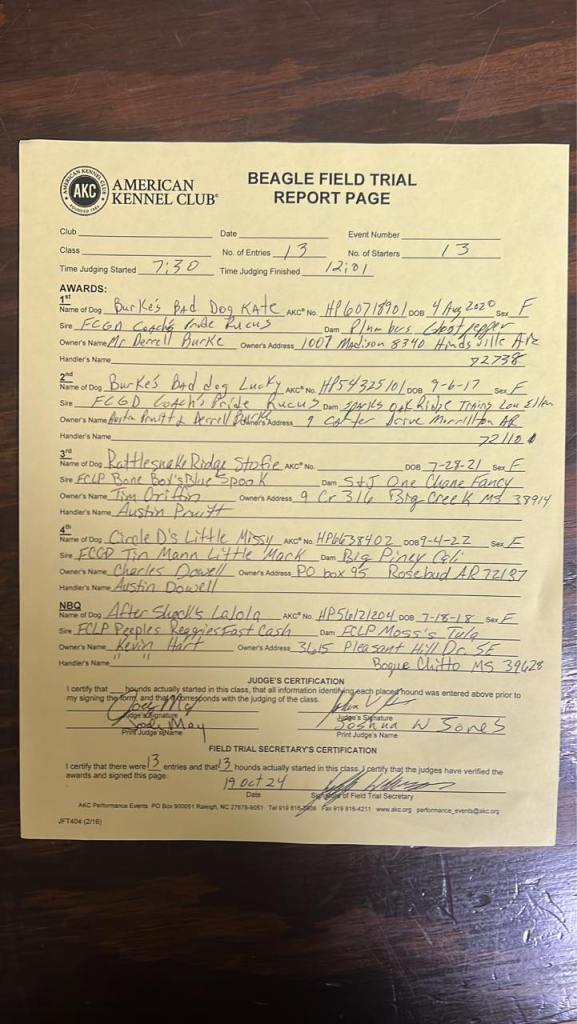 AMERICAN KENNEL CLUB
AKC
FOUNDED 1884
AMERICAN
KENNEL CLUB®
BEAGLE FIELD TRIAL
REPORT PAGE
Club Date Event Number
Class No. of Entries 13 No. of Starters 13
Time Judging Started 7:30 Time Judging Finished 12:01
AWARDS:
1st
Name of Dog Burke's Bad Dog Kate AKC® No. HP60718901 DOB 4 Aug 2020 Sex F
Sire FCGD Coach's Pride Rucus Dam Plumbers Ghostpepper
Owner's Name Mr Derrell Burke Owner's Address 1007 Madison 8340 Hindsville Ark
Handler's Name 72738
2nd
Name of Dog Burke's Bad dog Lucky AKC® No. HP54325101 DOB 9-6-17 Sex F
Sire FCGD Coach's Pride Rucus Dam Sparks Oak Ridge Trains Lou Ellen
Owner's Name Austin Pruitt & Derrell Burke Owner's Address 9 Drive Morrillton AR
Handler's Name 72110
3rd
Name of Dog Rattlesnake Ridge Stofie AKC® No. DOB 7-28-21 Sex F
Sire FCLP Bone Boy's Blue Spook Dam S&J One Chane Fancy
Owner's Name Tim Griffin Owner's Address 9 Cr 316 Big Creek MS 38914
Handler's Name Austin Pruitt
4th
Name of Dog Circle D's Little Missy AKC® No. HP6638402 DOB 9-4-22 Sex F
Sire FCGD Tin Mann Little Mack Dam Big Piney Cali
Owner's Name Charles Dowell Owner's Address PO box 95 Rosebud AR 72137
Handler's Name Austin Dowell
NBQ
Name of Dog After Shock's Lalola AKC® No. HP56121204 DOB 7-18-18 Sex F
Sire FCLP Peeples Reggies Fast Cash Dam FCLP Moss's Tula
Owner's Name Kevin Hart Owner's Address 3615 Pleasant Hill Dr. SE
Handler's Name " " Bogue Chitto MS 39628
JUDGE'S CERTIFICATION
I certify that hounds actually started in this class, that all information identifying each placed hound was entered above prior to
my signing the form, and that it corresponds with the judging of the class.
Judge's Signature Judge's Signature
Jode May Joshua W Jones
Print Judge's Name Print Judge's Name
FIELD TRIAL SECRETARY'S CERTIFICATION
I certify that there were 13 entries and that 13 hounds actually started in this class. I certify that the judges have verified the
awards and signed this page.
19 Oct 24
Date Signature of Field Trial Secretary
AKC Performance Events PO Box 900051 Raleigh, NC 27675-9051 Tel 919 816- Fax 919 816-4211 www.akc.org performance_events@akc.org
JFT404 (2/16)